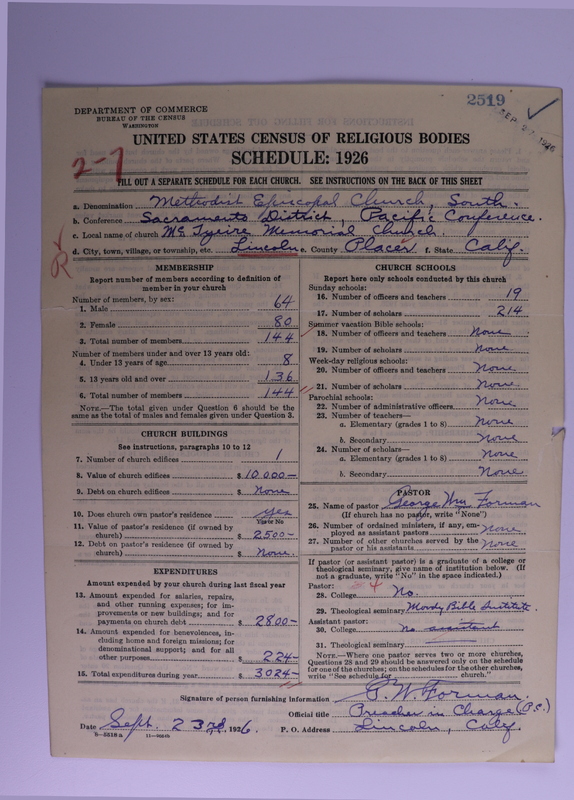 2519
SEP 27 1926
DEPARTMENT OF COMMERCE
BUREAU OF THE CENSUS
WASHINGTON
UNITED STATES CENSUS OF RELIGIOUS BODIES
SCHEDULE: 1926
2-7
FILL OUT A SEPARATE SCHEDULE FOR EACH CHURCH. SEE INSTRUCTIONS ON THE BACK OF THIS SHEET
a. Denomination Methodist Episcopal Church, South.
b. Conference Sacramento District, Pacific Conference.
c. Local name of church Mc Tyeire Memorial Church.
d. City, town, village, or township, etc. Lincoln e. County Placer f. State Calif.
MEMBERSHIP
Report number of members according to definition of member in your church
Number of members, by sex:
1. Male 64
2. Female 80
3. Total number of members 144
Number of members under and over 13 years old:
4. Under 13 years of age 8
5. 13 years old and over 136
6. Total number of members 144
NOTE.—The total given under Question 6 should be the same as the total of males and females given under Question 3.
CHURCH BUILDINGS
See instructions, paragraphs 10 to 12
7. Number of church edifices 1
8. Value of church edifices $10000—
9. Debt on church edifices $ None
10. Does church own pastor's residence yes
Yes or No
11. Value of pastor's residence (if owned by church) $ 2500—
12. Debt on pastor's residence (if owned by church) $ None.
EXPENDITURES
Amount expended by your church during last fiscal year
13. Amount expended for salaries, repairs, and other running expenses; for improvements or new buildings; and for payments on church debt $ 2800—
14. Amount expended for benevolences, including home and foreign missions; for denominational support; and for all other purposes $ 224—
15. Total expenditures during year $ 3024—
CHURCH SCHOOLS
Report here only schools conducted by this church
Sunday schools:
16. Number of officers and teachers 19
17. Number of scholars 214
Summer vacation Bible schools:
18. Number of officers and teachers None
19. Number of scholars None
Week-day religious schools:
20. Number of officers and teachers None
21. Number of scholars None
Parochial schools:
22. Number of administrative officers None
23. Number of teachers—
a. Elementary (grades 1 to 8) None
b. Secondary None
24. Number of scholars—
a. Elementary (grades 1 to 8) None
b. Secondary None
PASTOR
25. Name of pastor George Wm Forman
(If church has no pastor, write "None")
26. Number of ordained ministers, if any, employed as assistant pastors None
27. Number of other churches served by the pastor or his assistants None
If pastor (or assistant pastor) is a graduate of a college or theological seminary, give name of institution below. (If not a graduate, write "No" in the space indicated.)
Pastor:
28. College No.
29. Theological seminary Moody Bible Institute.
Assistant pastor:
30. College No assistant
31. Theological seminary
NOTE.—Where one pastor serves two or more churches, Questions 28 and 29 should be answered only on the schedule for one of the churches; on the schedules for the other churches, write "See schedule for church."
Signature of person furnishing information G. W. Forman.
Official title Preacher in Charge (P.C.)
Date Sept. 23rd, 1926. P. O. Address Lincoln, Calif.